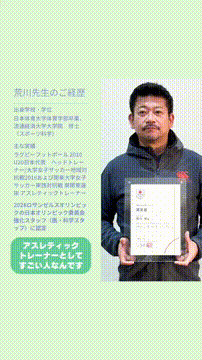 荒川先生のご経歴
出身学校・学位
日本体育大学体育学部卒業、
流通経済大学大学院 修士
（スポーツ科学）
主な実績
ラグビーフットボール 2010
U20日本代表 ヘッドトレー
ナー/大学女子サッカー地域対
抗戦2015および関東大学女子
サッカー東西対抗戦 東関東選
抜 アスレティックトレーナー
2028ロサンゼルスオリンピッ
クの日本オリンピック委員会
強化スタッフ（医・科学スタ
ッフ）に認定
アスレティック
トレーナーとして
すごい人なんです